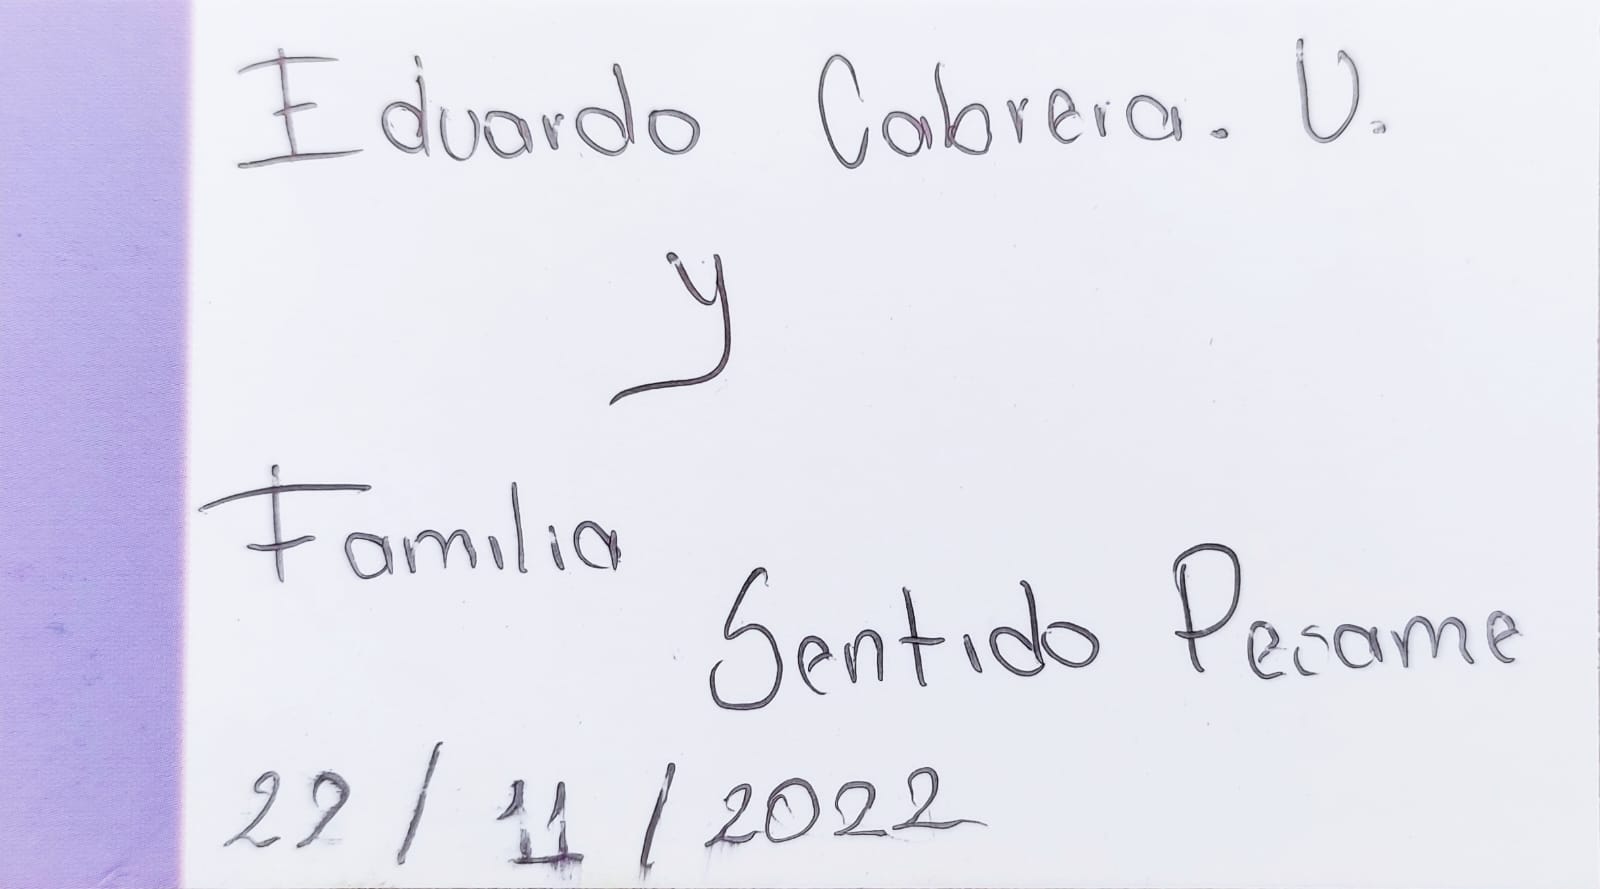 Eduardo Cabrera. U.
y
Familia
Sentido Pesame
22/11/2022